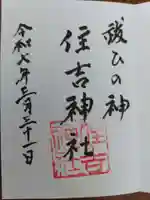 祓ひの神
住吉神社
令和七年三月二十一日